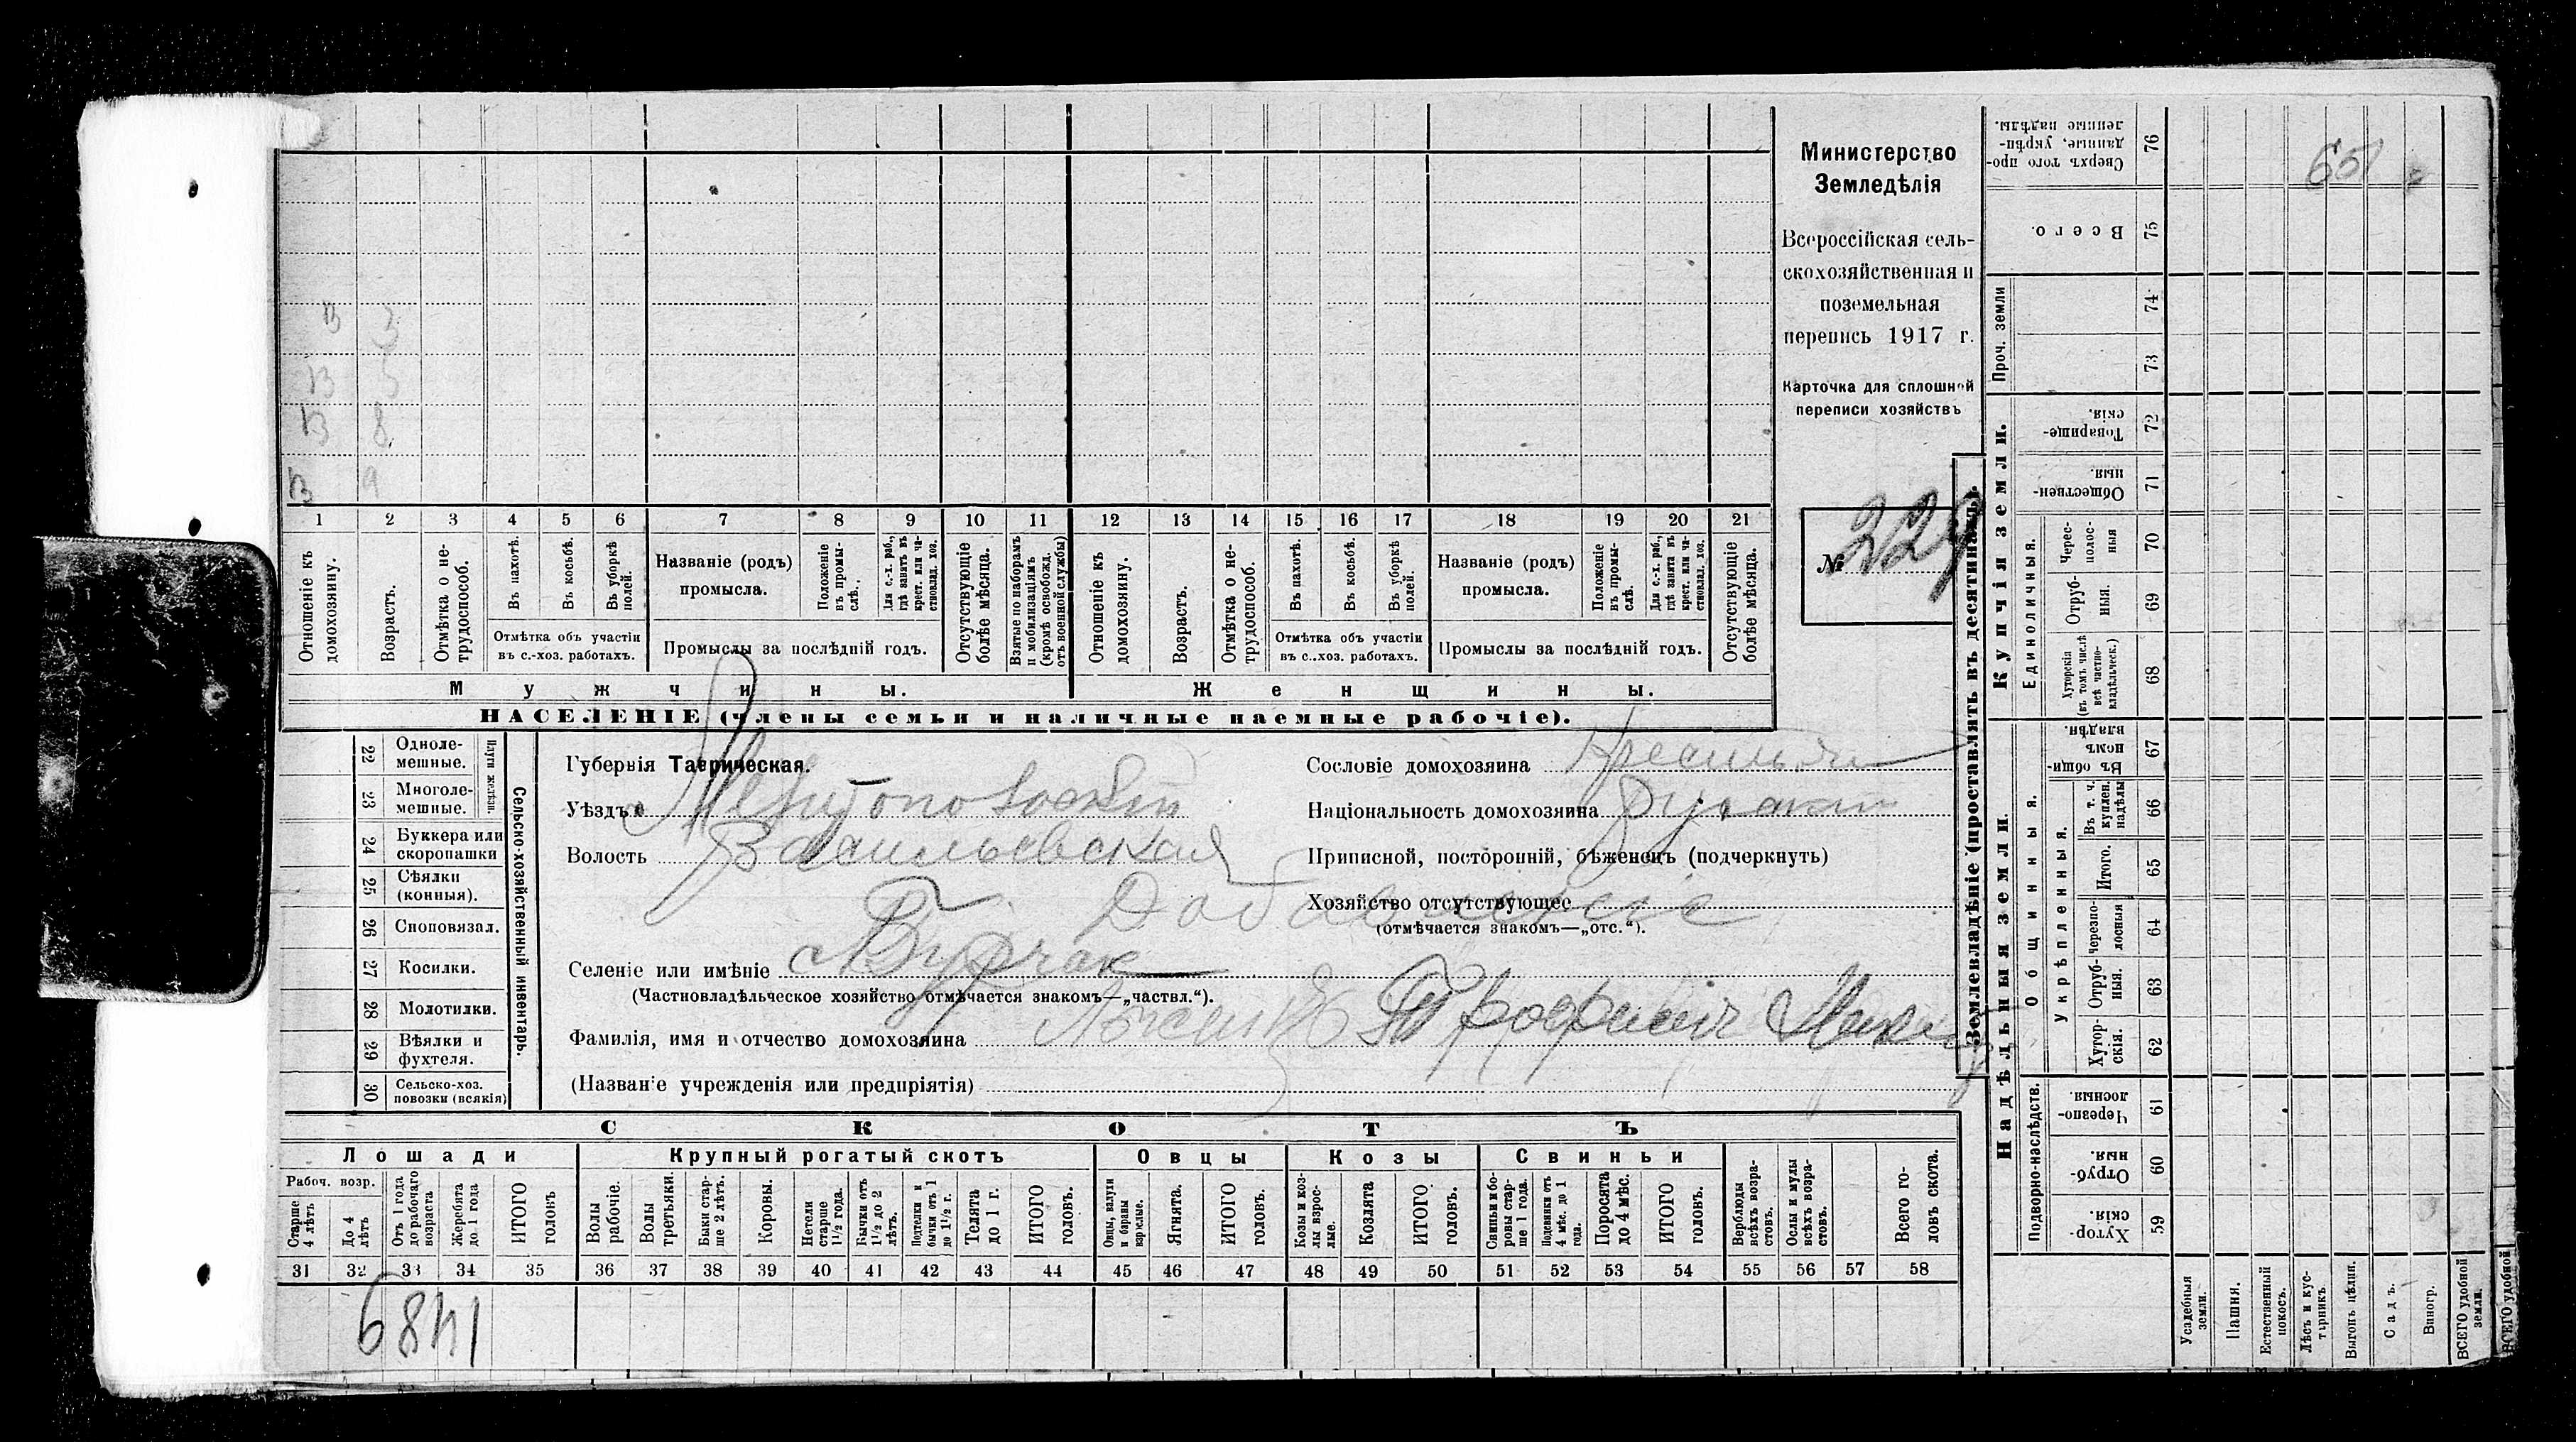 Министерство
Земледѣлія
Всероссійская сель-
скохозяйственная и
поземельная
перепись 1917 г.
Карточка для сплошной
переписи хозяйствъ
№ 229
65
В 3
В 5
В 8
В 9
1 2 3 4 5 6 7 8 9 10 11 12 13 14 15 16 17 18 19 20 21
Отношеніе къ домохозяину.
Возрастъ.
Отмѣтка о не-трудоспособ.
Въ пахотѣ.
Въ косьбѣ.
Въ уборкѣ полей.
Отмѣтка объ участіи
въ с.-хоз. работахъ.
Названіе (родъ)
промысла.
Положеніе въ промы-слѣ.
Для с.-х. раб., гдѣ занятъ въ крест. или ча-стновлад. хоз.
Промыслы за послѣдній годъ.
Отсутствующіе болѣе мѣсяца.
Взятые по наборамъ и мобилизаціямъ (кромѣ освобожд. отъ военной службы)
Отношеніе къ домохозяину.
Возрастъ.
Отмѣтка о не-трудоспособ.
Въ пахотѣ.
Въ косьбѣ.
Въ уборкѣ полей.
Отмѣтка объ участіи
въ с..хоз. работахъ.
Названіе (родъ)
промысла.
Положеніе въ промы-слѣ.
Для с.-х. раб., гдѣ занята въ крест. или ча-стновлад. хоз.
Промыслы за послѣдній годъ.
Отсутствующіе болѣе мѣсяца.
Мужчины.
Женщины.
НАСЕЛЕНІЕ (члены семьи и наличные наемные рабочіе).
22 Одноле-мешные.
23 Многоле-мешные.
Плуги желѣзн.
24 Буккера или скоропашки
25 Сѣялки (конныя).
26 Сноповязал.
27 Косилки.
28 Молотилки.
29 Вѣялки и фухтеля.
30 Сельско-хоз. повозки (всякія)
Сельско-хозяйственный инвентарь.
Губернія Таврическая.
Уѣздъ Мелитопольскій
Волость Васильевская
Селеніе или имѣніе Бурчак
(Частновладѣльческое хозяйство отмѣчается знакомъ—„частвл.“).
Фамилія, имя и отчество домохозяина Трофимъ
(Названіе учрежденія или предпріятія)
Сословіе домохозяина Крестьян
Національность домохозяина Русски
Приписной, посторонній, бѣженецъ (подчеркнуть)
Хозяйство отсутствующее
(отмѣчается знакомъ—„отс.“).
Добавленіе
СКОТЪ
Лошади
Крупный рогатый скотъ
Овцы
Козы
Свиньи
Рабоч. возр.
Старше 4 лѣтъ
До 4 лѣтъ
Отъ 1 года до рабочаго возраста
Жеребята до 1 года
ИТОГО головъ
Волы рабочіе.
Волы третьяки.
Быки стар-ше 2 лѣтъ.
Коровы.
Нетели старше 1½ года.
Бычки отъ 1½ до 2 лѣтъ.
Подтелки и бычки отъ 1 до 1½ г.
Телята до 1 г.
ИТОГО головъ.
Овцы, валухи и бараны взрослые.
Ягнята.
ИТОГО головъ.
Козы и коз-лы взрос-лые.
Козлята
ИТОГО головъ.
Свиньи и бо-ровы стар-ше 1 года.
Подсвинки отъ 4 мѣс. до 1 года.
Поросята до 4 мѣс.
ИТОГО головъ.
Верблюды всѣхъ возра-стовъ.
Ослы и мулы всѣхъ возра-стовъ.
Всего го-ловъ скота.
31 32 33 34 35 36 37 38 39 40 41 42 43 44 45 46 47 48 49 50 51 52 53 54 55 56 57 58
1489
Землевладѣніе (проставлять въ десятинахъ).
Купчія земли.
Надѣльныя земли.
Проч. земли
Единоличныя.
Общинныя.
Укрѣпленныя.
Подворно-наслѣдств.
76 Сверхъ того про-данные, укрѣп-ленные надѣлы.
75 Всего.
74
73
72 Товарище-скія.
71 Обществен-ныя.
70 Черес-полос-ныя
69 Отруб-ныя.
68 Хуторскія (въ томъ числѣ всѣ частно-владѣльческ.)
67 Въ общин-номъ владѣн.
66 Въ т. ч. куплен. надѣлы
65 Итого.
64 Черезпо-лосныя
63 Отруб-ныя.
62 Хутор-скія.
61 Черезпо-лосныя.
60 Отруб-ныя.
59 Хутор-скія.
Усадебныя земли.
Пашня.
Естественный покосъ.
Лѣсъ и кус-тарникъ
Выгонъ цѣлин.
Садъ.
Виногр.
ВСЕГО удобной земли.
ВСЕГО удобной